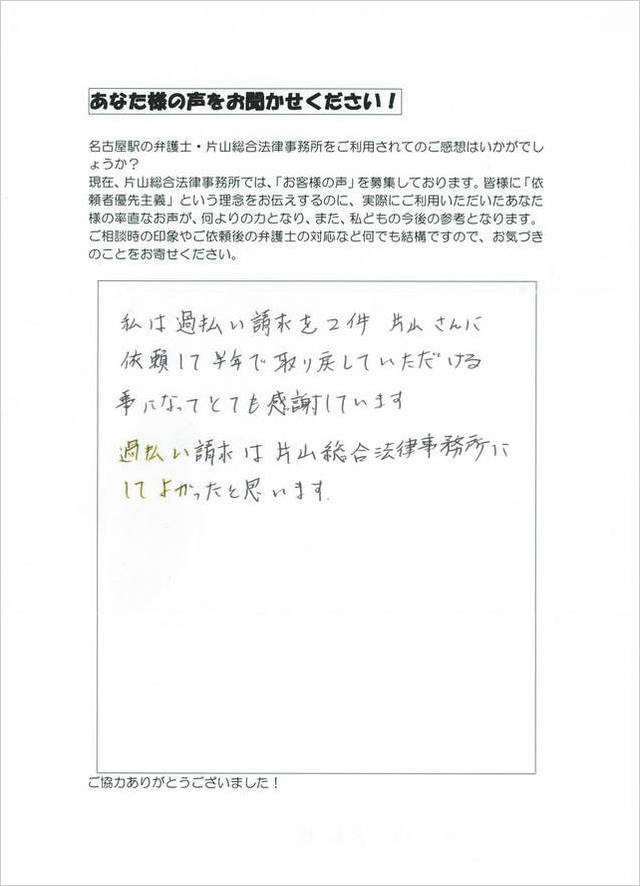 あなた様の声をお聞かせください！
名古屋駅の弁護士・片山総合法律事務所をご利用されてのご感想はいかがでし
ょうか？
現在、片山総合法律事務所では、「お客様の声」を募集しております。皆様に「依
頼者優先主義」という理念をお伝えするのに、実際にご利用いただいたあなた
様の率直なお声が、何よりの力となり、また、私どもの今後の参考となります。
ご相談時の印象やご依頼後の弁護士の対応など何でも結構ですので、お気づき
のことをお寄せください。
私は過払い請求を2件 片山さんに
依頼して半年で取り戻していただける
事になってとても感謝しています
過払い請求は片山総合法律事務所に
してよかったと思います.
ご協力ありがとうございました！